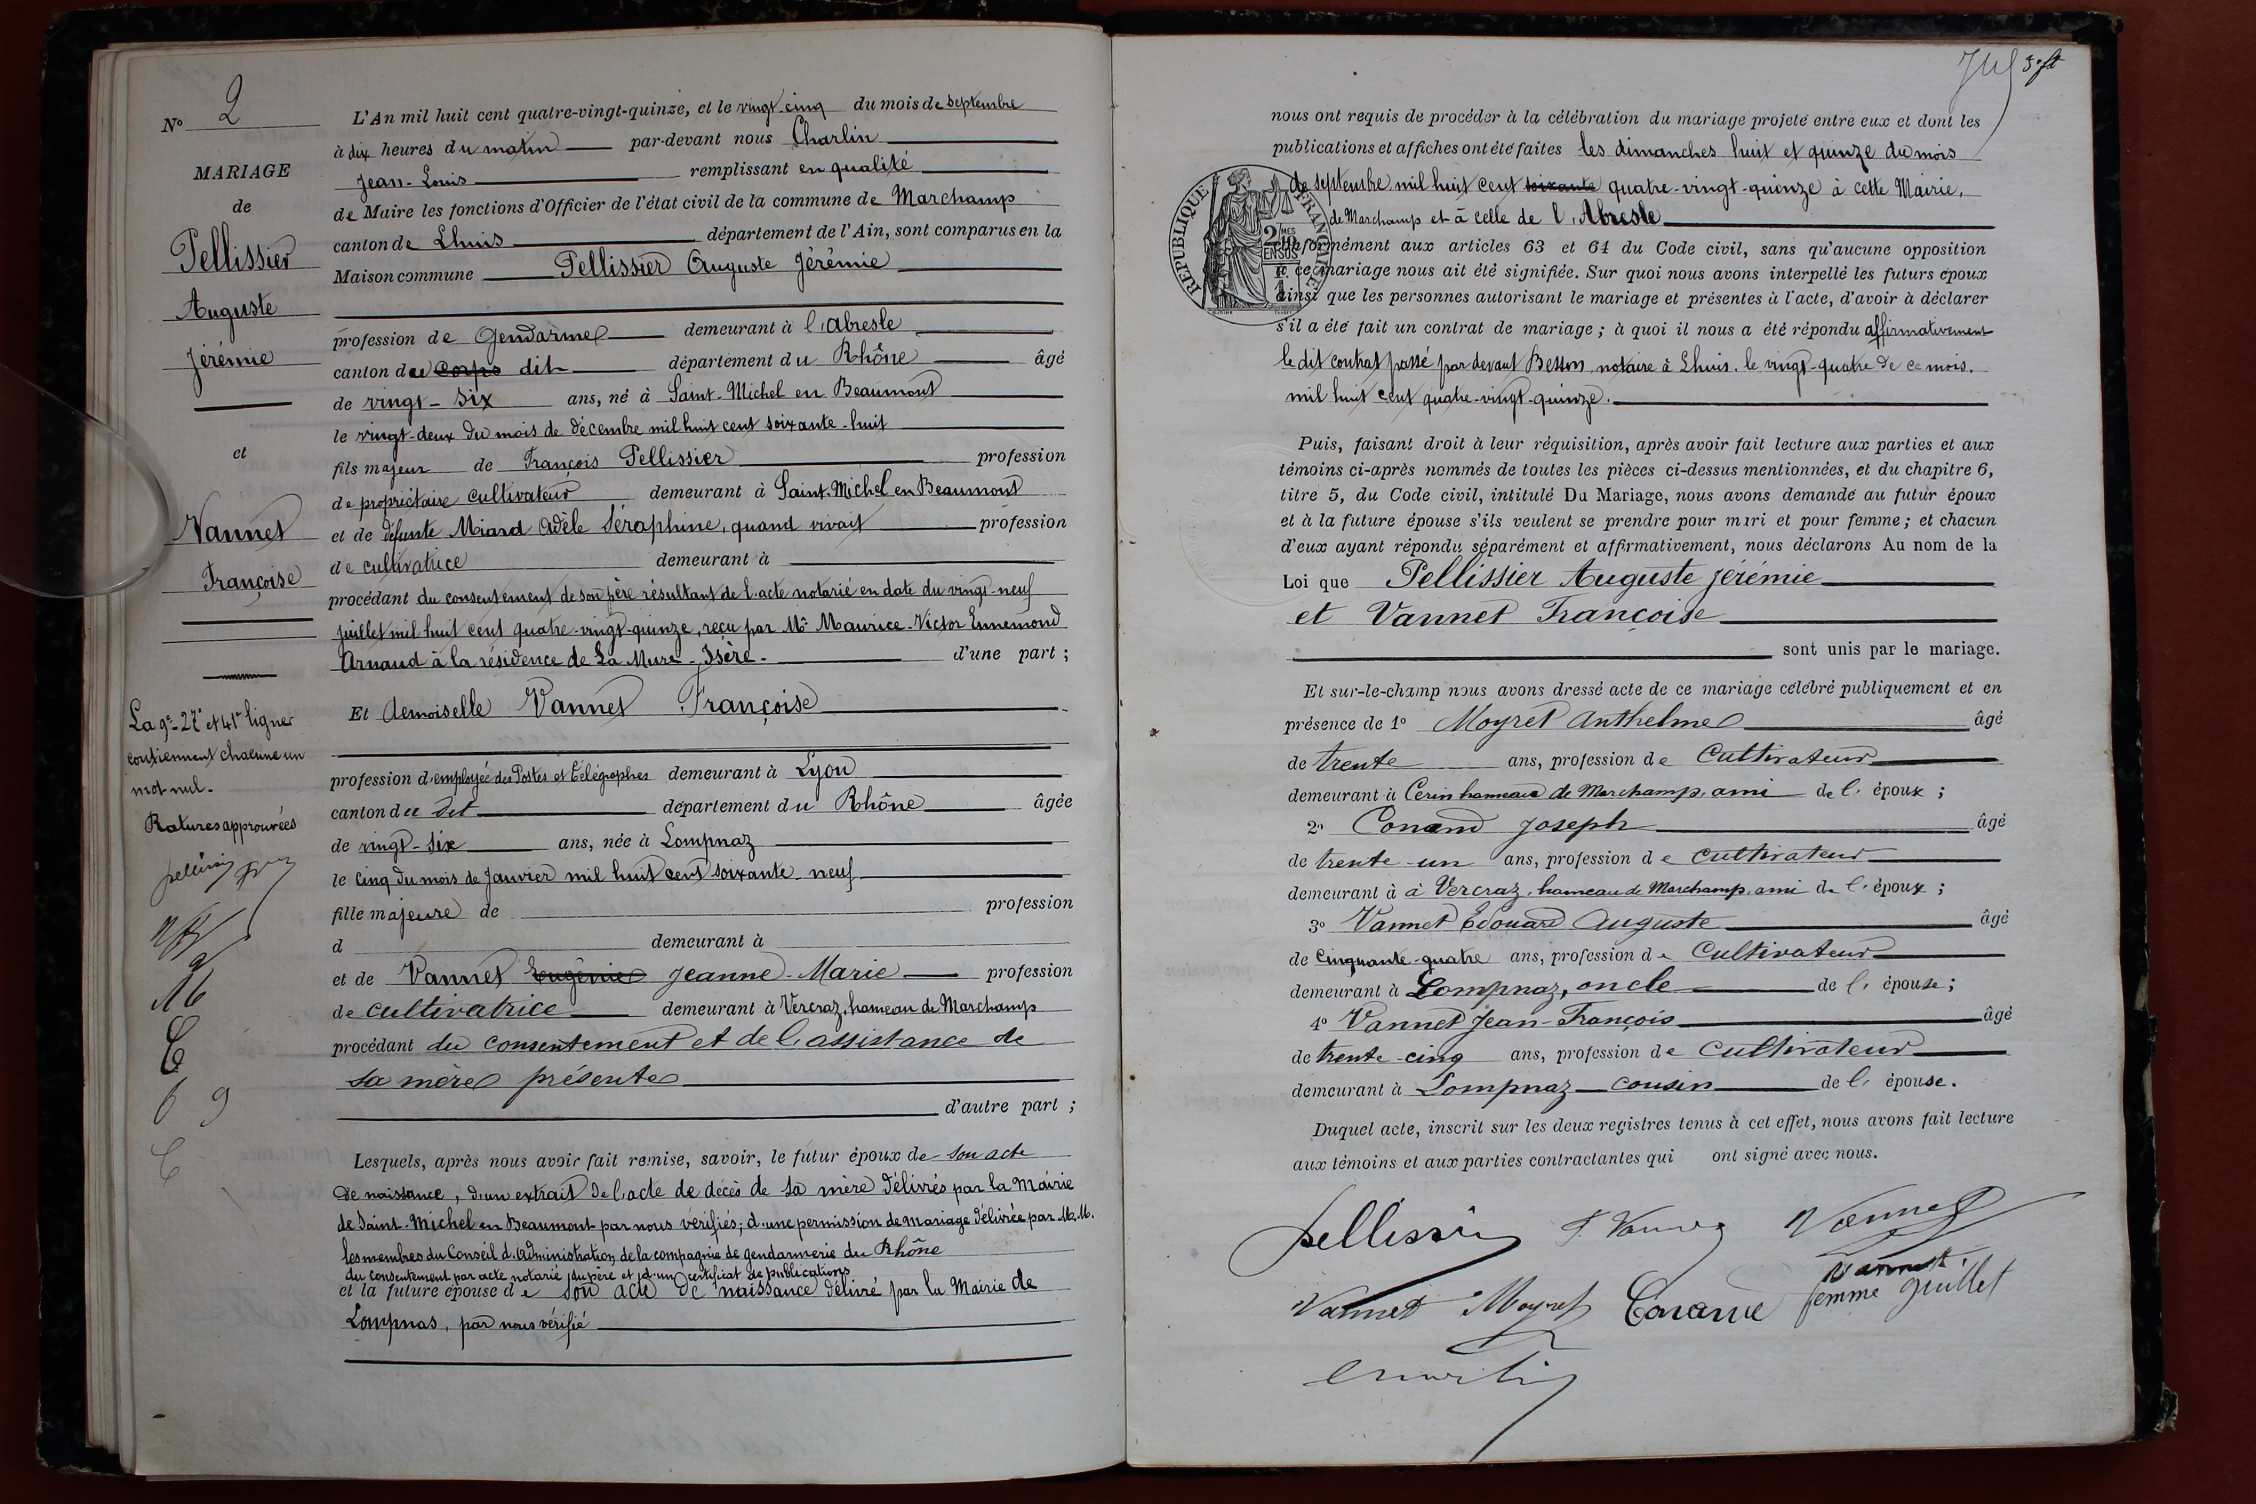 N° 2
MARIAGE
de
Pellissier
Auguste
Jérémie
et
Vannet
Françoise
La 9e - 27e et 41e lignes
contiennent chacune un
mot nul.
Ratures approuvées
L'An mil huit cent quatre-vingt-quinze, et le vingt-cinq du mois de septembre
à dix heures du matin par-devant nous Charlin
Jean-Louis remplissant en qualité
de Maire les fonctions d'Officier de l'état civil de la commune de Marchamp
canton de Lhuis département de l'Ain, sont comparus en la
Maison commune Pellissier Auguste Jérémie
profession de Gendarme demeurant à l'Abresle
canton du Corps dit département du Rhône âgé
de vingt-six ans, né à Saint-Michel en Beaumont
le vingt-deux du mois de décembre mil huit cent soixante-huit
fils majeur de François Pellissier profession
de propriétaire cultivateur demeurant à Saint-Michel en Beaumont
et de défunte Miard Adèle Séraphine, quand vivait profession
de cultivatrice demeurant à
procédant du consentement de son père résultant de l'acte notarié en date du vingt-neuf
juillet mil huit cent quatre-vingt-quinze, reçu par Me Maurice-Victor Ennemond
Arnaud à la résidence de La Mure-Isère. d'une part ;
Et demoiselle Vannet Françoise
profession d'employée des Postes et Télégraphes demeurant à Lyon
canton du dit département du Rhône âgée
de vingt-six ans, née à Lompnaz
le cinq du mois de Janvier mil huit cent soixante-neuf
fille majeure de profession
d demeurant à
et de Vannet Eugénie Jeanne-Marie profession
de cultivatrice demeurant à Vercraz, hameau de Marchamp
procédant du consentement et de l'assistance de
sa mère présente
d'autre part ;
Lesquels, après nous avoir fait remise, savoir, le futur époux de son acte
de naissance, d'un extrait de l'acte de décès de sa mère délivrés par la Mairie
de Saint-Michel en Beaumont par nous vérifiés; d'une permission de mariage délivrée par M.M.
les membres du Conseil d'Administration de la compagnie de gendarmerie du Rhône
du consentement par acte notarié du père et d'un certificat de publications
et la future épouse de son acte de naissance délivré par la Mairie de
Lompnas, par nous vérifié
nous ont requis de procéder à la célébration du mariage projeté entre eux et dont les
publications et affiches ont été faites les dimanches huit et quinze du mois
de septembre mil huit cent soixante quatre-vingt-quinze à cette Mairie,
de Marchamp et à celle de l'Abresle
RÉPUBLIQUE FRANÇAISE
conformément aux articles 63 et 64 du Code civil, sans qu'aucune opposition
à ce mariage nous ait été signifiée. Sur quoi nous avons interpellé les futurs époux
ainsi que les personnes autorisant le mariage et présentes à l'acte, d'avoir à déclarer
s'il a été fait un contrat de mariage ; à quoi il nous a été répondu affirmativement
le dit contrat passé par devant Besson, notaire à Lhuis, le vingt-quatre de ce mois.
mil huit cent quatre-vingt-quinze.
Puis, faisant droit à leur réquisition, après avoir fait lecture aux parties et aux
témoins ci-après nommés de toutes les pièces ci-dessus mentionnées, et du chapitre 6,
titre 5, du Code civil, intitulé Du Mariage, nous avons demandé au futur époux
et à la future épouse s'ils veulent se prendre pour mari et pour femme ; et chacun
d'eux ayant répondu séparément et affirmativement, nous déclarons Au nom de la
Loi que Pellissier Auguste Jérémie
et Vannet Françoise
sont unis par le mariage.
Et sur-le-champ nous avons dressé acte de ce mariage célébré publiquement et en
présence de 1° Moyret Anthelme âgé
de trente ans, profession de Cultivateur
demeurant à Cerin hameau de Marchamp, ami de l'époux ;
2° Conand Joseph âgé
de trente-un ans, profession de cultivateur
demeurant à à Vercraz, hameau de Marchamp, ami de l'époux ;
3° Vannet Edouard Auguste âgé
de cinquante-quatre ans, profession de Cultivateur
demeurant à Lompnaz, oncle de l'épouse ;
4° Vannet Jean-François âgé
de trente-cinq ans, profession de Cultivateur
demeurant à Lompnaz cousin de l'épouse.
Duquel acte, inscrit sur les deux registres tenus à cet effet, nous avons fait lecture
aux témoins et aux parties contractantes qui ont signé avec nous.
Pellissier F. Vannet Vannet
Vannet
femme Guillet
Vannet Moyret Conand
Charlin